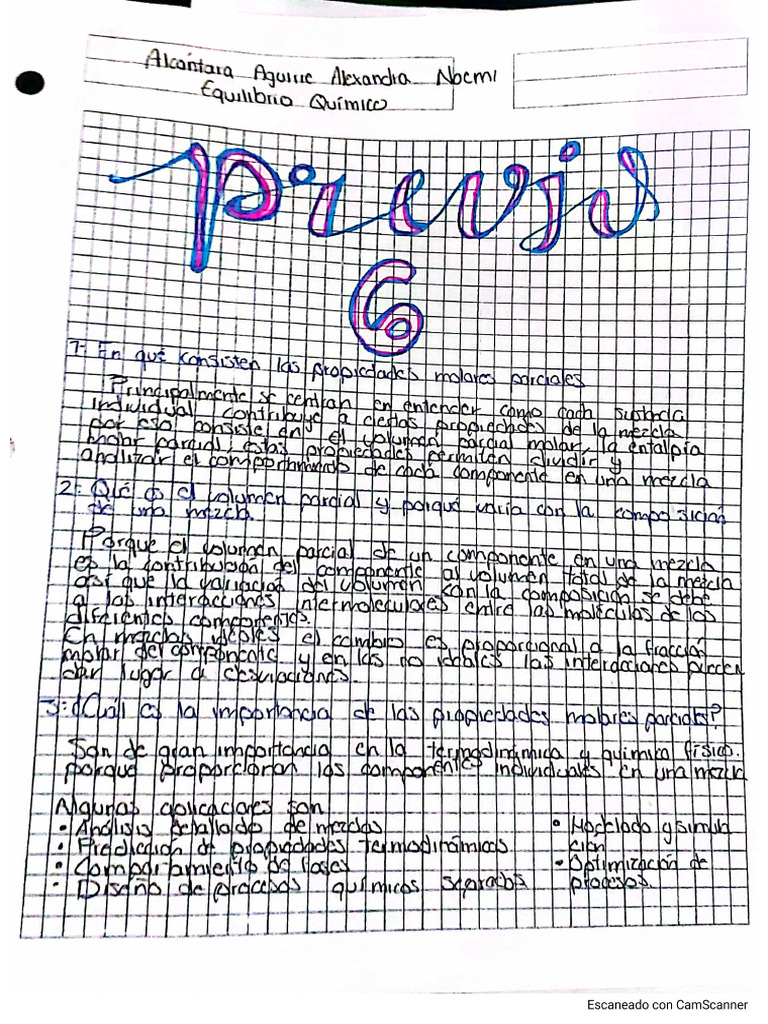 Alcántara Aguirre Alexandra Noemi
Equilibrio Químico
previo
6
1: En qué consisten las propiedades molares parciales
Principalmente se centran en entender como cada sustancia
individual contribuye a ciertas propiedades de la mezcla
por eso consiste en el volumen parcial molar, la entalpía
molar parcial, estas propiedades permiten dividir y
analizar el comportamiento de cada componente en una mezcla
2: Qué es el volumen parcial y porqué varía con la composición
de una mezcla.
Porque el volumen parcial de un componente en una mezcla
es la contribución del componente al volumen total de la mezcla
así que la variación del volumen con la composición se debe
a las interacciones intermoleculares entre las moléculas de los
diferentes componentes.
En mezclas ideales el cambio es proporcional a la fracción
molar del componente y en las no ideales las interacciones pueden
dar lugar a desviaciones.
3: ¿Cuál es la importancia de las propiedades molares parciales?
Son de gran importancia en la termodinámica y química físico.
porque proporcionan los componentes individuales en una mezcla
Algunas aplicaciones son
• Análisis detallado de mezclas
• Predicción de propiedades termodinámicas
• Comportamiento de fases
• Diseño de procesos químicos separados
• Modelado y simula
ción
• Optimización de
procesos.
Escaneado con CamScanner